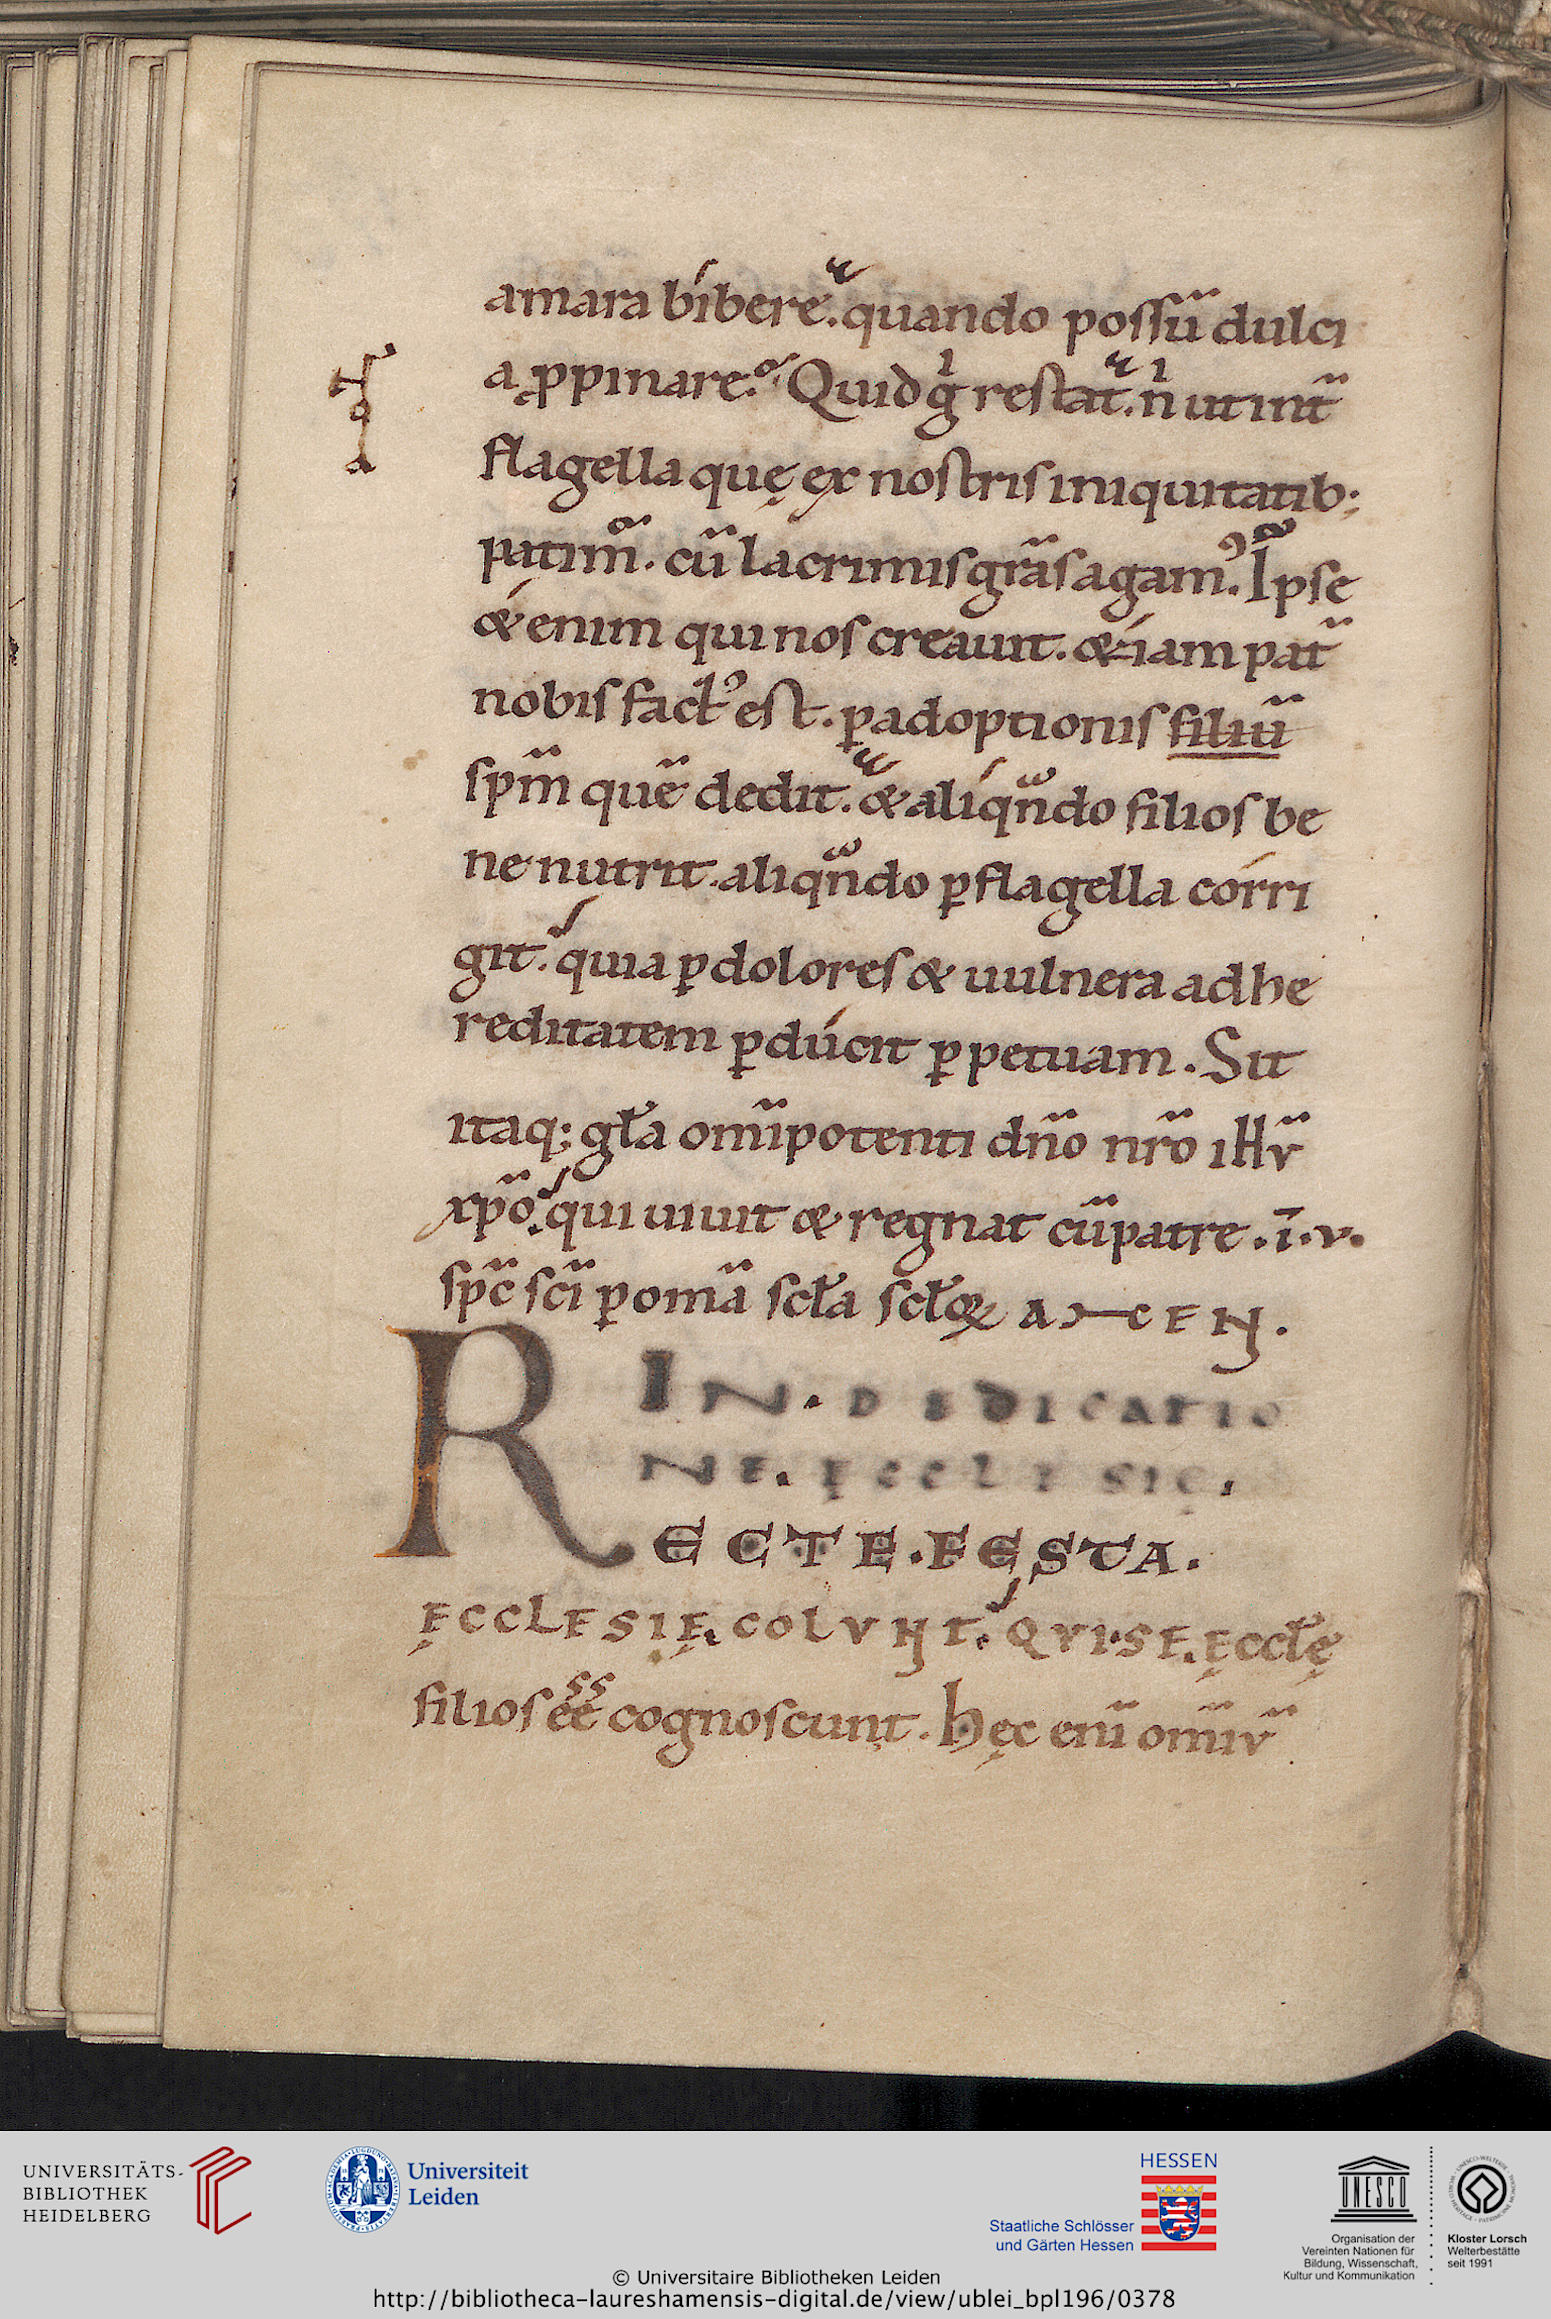 amara bíbere. quando possū dulci
a ꝓpinare. Quid gͥ restat. nͥ ut int̄
flagella quę ex nostris iniquitatib;
patim̄. cū lacrimis grās agam. Ipse
& enim qui nos creauit. &iam pat̄
nobis fact᾽ est. ꝑ adoptionis filiū
spm̄ quē dedit. & aliqn̄do filios be
ne nutrit. aliqn̄do ꝑ flagella córri
git. quia ꝑ dolores & uulnera ad he
reditatem ꝑdúcit ꝑpetuam. Sit
itaq; gła om̄ipotenti dn̄o nr̄o ihv̄
xp̄o. qui uiuit & regnat cū patre. ī. v.
sp̄c sc̄i ꝑ om̄a scła scłoꝝ AMEN.
IN. DEDICATIO
NE. ĘCCLESIĘ.
RECTE. FESTA.
ĘCCLESIĘ. COLVNT. QVI. SE. Ęccłę
filios ee cognoscunt. hęc enī om̄iv̄
UNIVERSITÄTS-
BIBLIOTHEK
HEIDELBERG
Universiteit
Leiden
HESSEN
Staatliche Schlösser
und Gärten Hessen
UNESCO
Organisation der
Vereinten Nationen für
Bildung, Wissenschaft,
Kultur und Kommunikation
Kloster Lorsch
Welterbestätte
seit 1991
© Universitaire Bibliotheken Leiden
http://bibliotheca-laureshamensis-digital.de/view/ublei_bpl196/0378